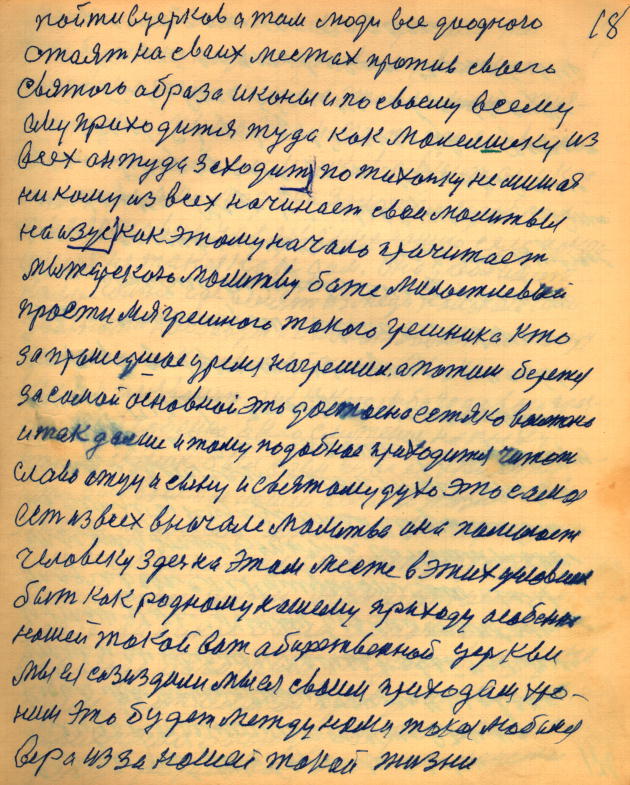 пойти в церков а там люди все до одного 18
стаят на своих местах против своего
святого образа иконы и по своему всему
ему приходится туда как молельщику из
всех он туда заходит потихонку не мишая
никому из всех начинает свои молитвы
на изус как этому начало прачитает
мытарскою молитву баже миластлевый
прости мя грешного такого грешника кто
за прашедшее время нагрешил а потом берется
за самой основной это достоено есть яко воистино
и так далше и тому подобное приходится читат
слава отцу и сыну и святому духо это самая
ест из всех вначале молитва она памагает
человеку здес на этом месте в этих условиях
быт как родному нашему приходу особенно
нашей такой вот церкви
мы ея созиздали мы ея своим приходам хро-
ним это будет между нами такая любимая
вера из за нашей такой жизни